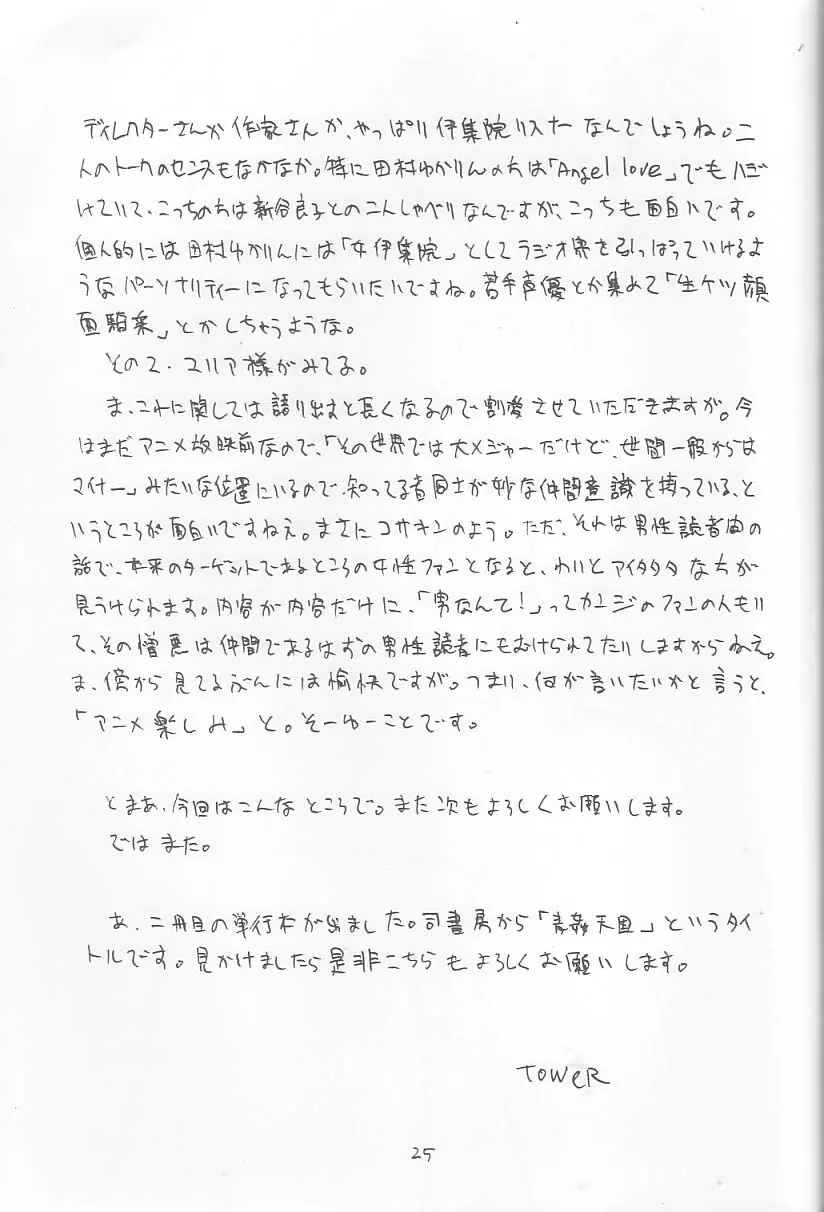 ディレクターさんか作家さんか、やっぱり伊集院リスナーなんでしょうね。二
人のトークのセンスもなかなか。特に田村ゆかりんの方は「Angel love」でもハジ
けていて、こっちの方は新谷良子との二人しゃべりなんですが、こっちも面白いです。
個人的には田村ゆかりんには「女伊集院」としてラジオ界を引っぱっていけるよ
うなパーソナリティーになってもらいたいですね。若手声優とか集めて「生ケツ顔
面騎乗」とかしちゃうような。
その2.マリア様がみてる。
ま、これに関しては語り出すと長くなるので割愛させていただきますが。今
はまだアニメ放映前なので、「その世界では大メジャーだけど、世間一般からは
マイナー」みたいな位置にいるので、知ってる者同士が妙な仲間意識を持っている、と
いうところが面白いですねえ。まさにコサキンのよう。ただ、それは男性読者間の
話で、本来のターゲットであるところの女性ファンとなると、わりとアイタタタな方が
見うけられます。内容が内容だけに、「男なんて!」ってカンジのファンの人もい
て、その憎悪は仲間であるはずの男性読者にもむけられてたりしますからねえ。
ま、傍から見てるぶんには愉快ですが。つまり、何が言いたいかと言うと、
「アニメ楽しみ」と。そーゆーことです。
とまあ、今回はこんなところで。また次もよろしくお願いします。
ではまた。
あ、二冊目の単行本が出ました。司書房から「青姦天国」というタイ
トルです。見かけましたら是非こちらもよろしくお願いします。
TOWeR
25